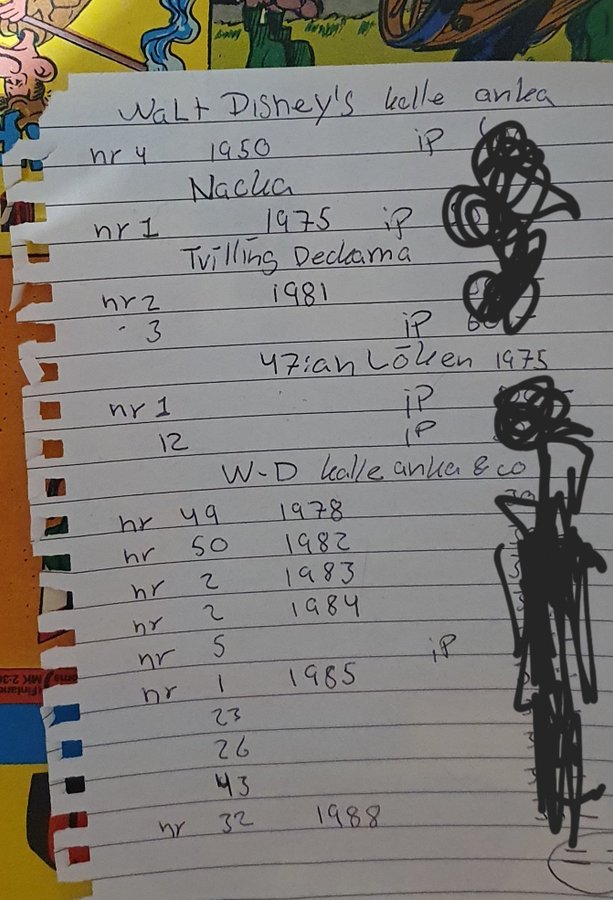 Walt Disney's kalle anka
nr 4 1950 iP
Nacka
nr 1 1975 iP
Tvilling Deckarna
nr 2 1981
3 iP
47:an Löken 1975
nr 1 iP
12 iP
W-D kalle anka & co
nr 49 1978
nr 50 1982
nr 2 1983
nr 2 1984
nr 5 iP
nr 1 1985
23
26
43
nr 32 1988